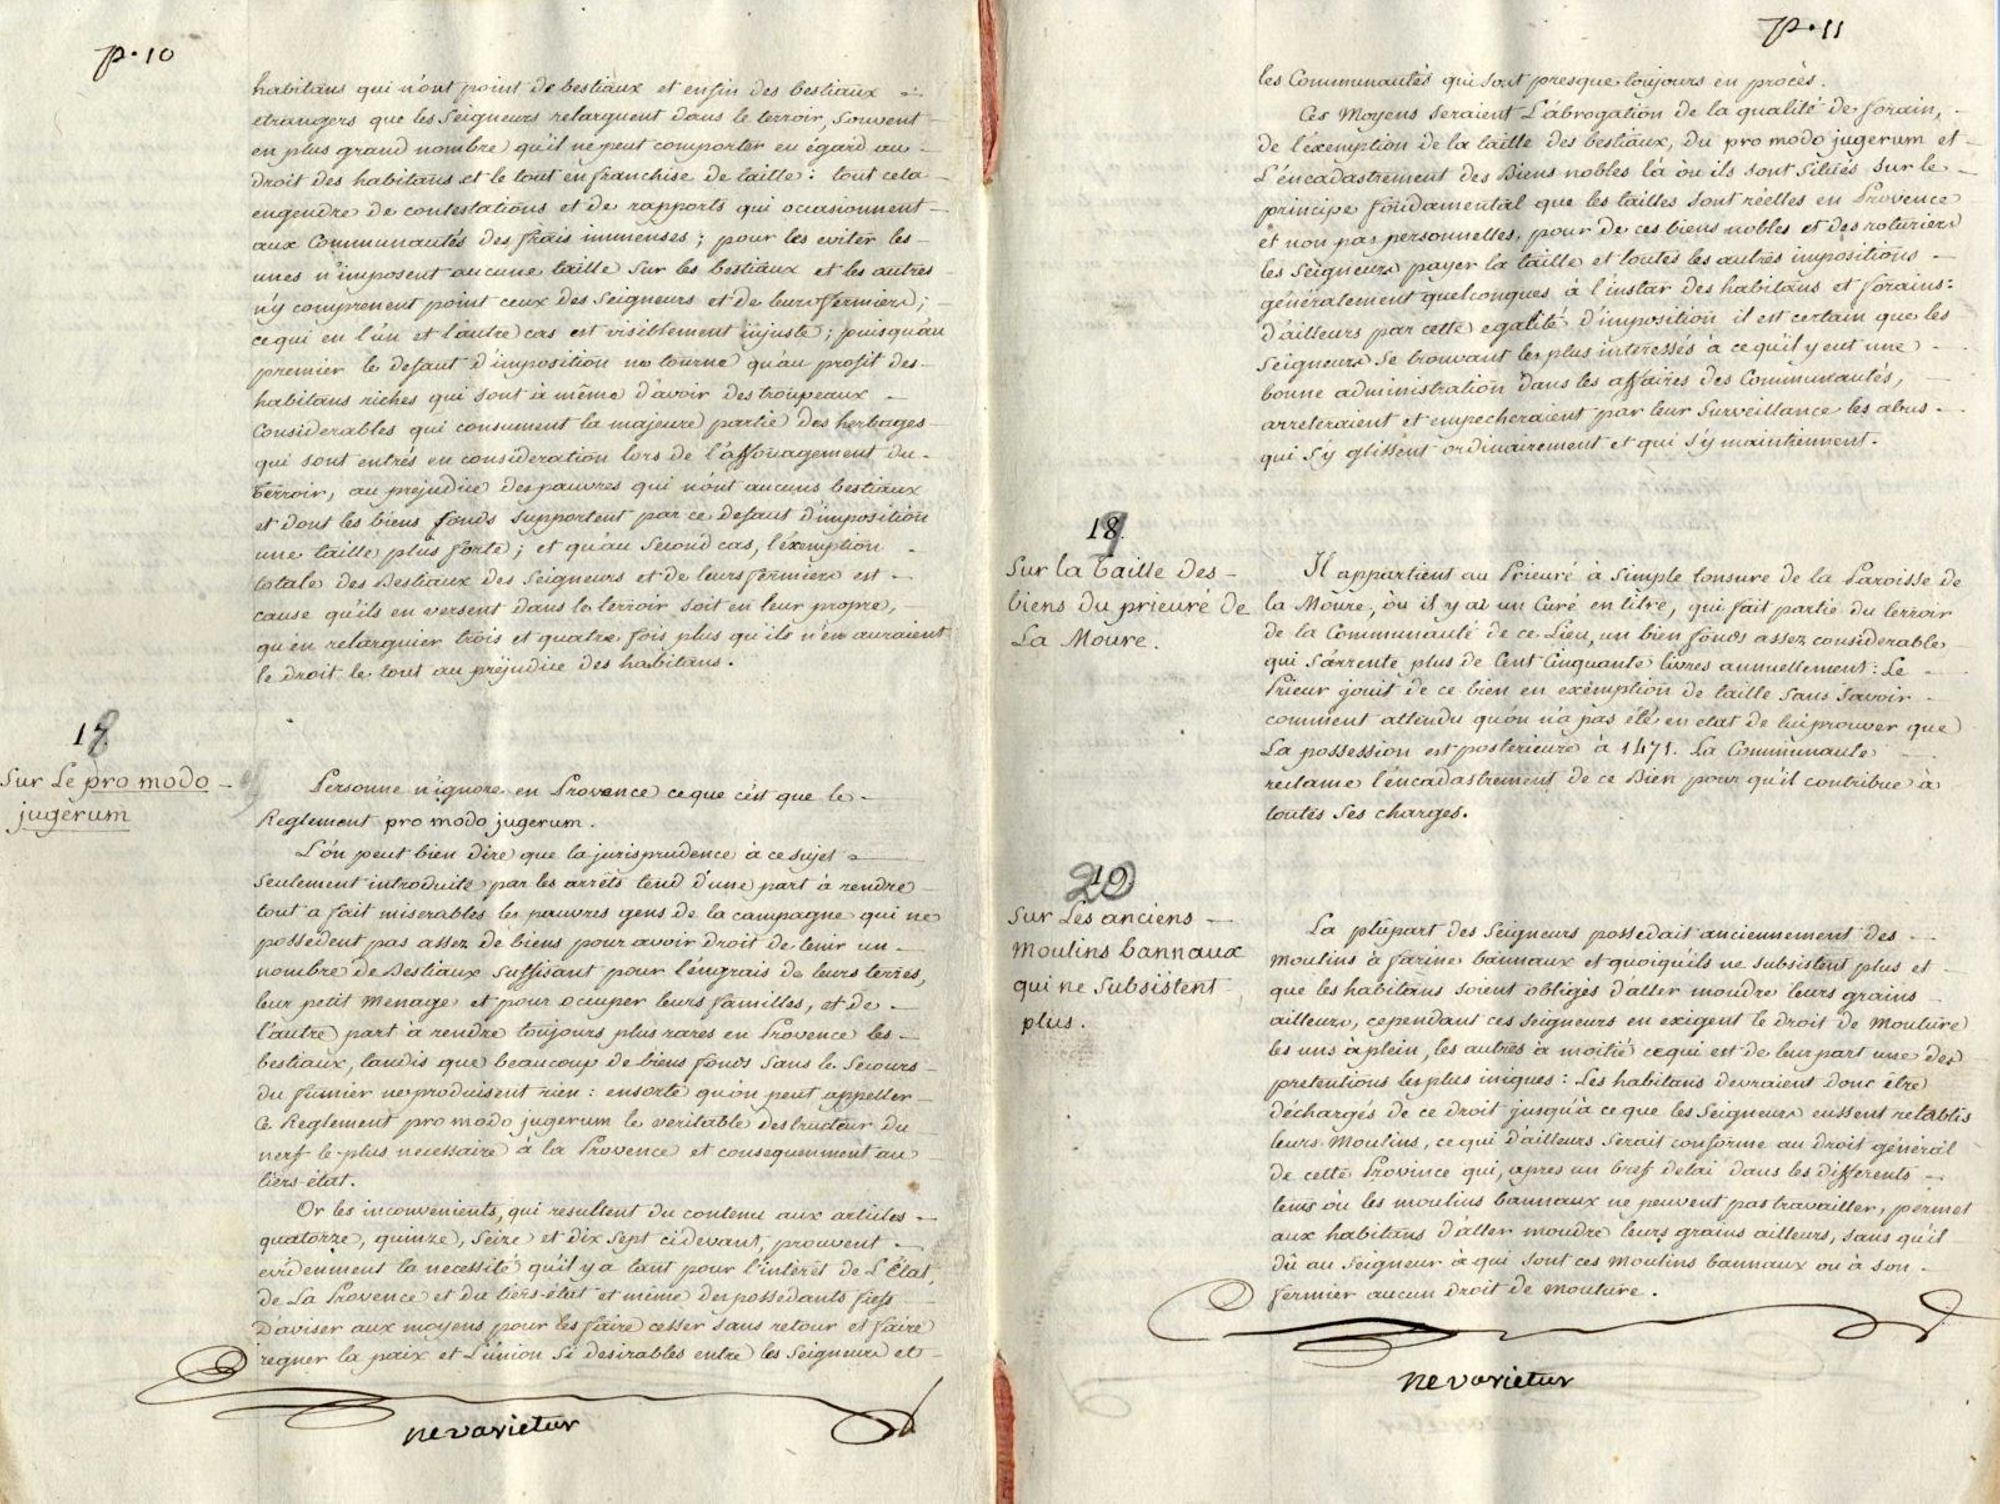 p. 10
habitans qui n'ont point de bestiaux et enfin des bestiaux
etrangers que les Seigneurs relarguent dans le terroir, souvent
en plus grand nombre qu'il ne peut comporter eu égard au
droit des habitans et le tout en franchise de taille: tout cela
engendre de contestations et de rapports qui occasionnent
aux Communautés des frais immenses; pour les eviter les
unes n'imposent aucune taille sur les bestiaux et les autres
n'y comprenent point ceux des Seigneurs et de leurs fermiers;
ce qui en l'un et l'autre cas est visiblement injuste; puisqu'au
premier le defaut d'imposition ne tourne qu'au profit des
habitans riches qui sont à même d'avoir des troupeaux
Considerables qui consument la majeure partie des herbages
qui sont entrés en consideration lors de l'affouagement du
terroir, au prejudice des pauvres qui n'ont aucuns bestiaux
et dont les biens fonds supportent par ce defaut d'imposition
une taille plus forte; et qu'au Second cas, l'éxemption
totale des Bestiaux des Seigneurs et de leurs fermiers est
cause qu'ils en versent dans le terroir soit en leur propre,
qu'en relarguier trois et quatre fois plus qu'ils n'en auraient
le droit le tout au préjudice des habitans.
17.
Sur Le pro modo
jugerum
Personne n'ignore en Provence ce que c'est que le
Reglement pro modo jugerum.
L'on peut bien dire que la jurisprudence à ce sujet
seulement introduite par les arrêts tend d'une part à rendre
tout a fait miserables les pauvres gens de la campagne qui ne
possedent pas assez de biens pour avoir droit de tenir un
nombre de Bestiaux suffisant pour l'engrais de leurs terres,
leur petit menage et pour occuper leurs familles, et de
l'autre part à rendre toujours plus rares en Provence les
bestiaux, tandis que beaucoup de biens fonds sans le Secours
du fumier ne produisent rien: ensorte qu'on peut appeller
Ce Reglement pro modo jugerum le veritable destructeur du
nerf le plus necessaire à la Provence et consequemment au
tiers-état.
Or les inconvenients, qui resultent du contenu aux articles
quatorze, quinze, Seize et dix sept ci devant, prouvent
evidenment la necessité qu'il y a tant pour l'interêt de L'Etat,
de La Provence et du tiers-état et même des possedants fiefs
D'aviser aux moyens pour les faire cesser sans retour et faire
regner la paix et L'union Si desirables entre les Seigneurs et
ne varietur
p. 11
les Communautés qui sont presque toujours en procès.
Ces Moyens seraient L'abrogation de la qualité de forain,
de l'éxemption de la taille des bestiaux, du pro modo jugerum et
L'éncadastrement des Biens nobles là où ils sont situés sur le
principe fondamental que les tailles sont réelles en Provence
et non pas personnelles, pour de ces biens nobles et des roturiers
les Seigneurs payer la taille et toutes les autres impositions
généralement quelconques à l'instar des habitans et forains:
d'ailleurs par cette egalité d'imposition il est certain que les
Seigneurs se trouvant les plus interessés à ce qu'il y eut une
bonne administration dans les affaires des Communautés,
arreteraient et empecheraient par leur surveillance les abus
qui s'y glissent ordinairement et qui s'y maintiennent.
18.
Sur la Taille des
biens du prieuré de
La Moure.
Il appartient au Prieuré à simple tonsure de la Paroisse de
la Moure, où il y a un Curé en titre, qui fait partie du terroir
de la Communauté de ce Lieu, un bien fonds assez considerable
qui s'arrente plus de Cent Cinquante livres annuellement: Le
Prieur jouit de ce bien en exemption de taille sans savoir
comment attendu qu'on n'a pas été en etat de lui prouver que
La possession est posterieure à 1471. La Communauté
reclame l'éncadastrement de ce Bien pour qu'il contribue à
toutes ses charges.
19.
Sur Les anciens
Moulins bannaux
qui ne subsistent
plus.
La plûpart des Seigneurs possedait anciennement des
Moulins à farine bannaux et quoiqu'ils ne subsistent plus et
que les habitans soient obligés d'aller moudre leurs grains
ailleurs, cependant ces Seigneurs en exigent le droit de Mouture
les uns à plein, les autres à moitié ce qui est de leur part une des
pretentions les plus iniques: Les habitans devraient donc être
déchargés de ce droit jusqu'à ce que les Seigneurs eussent retablis
leurs Moulins, ce qui d'ailleurs serait conforme au droit général
de cette Province qui, après un bref delai dans les differents
tems où les moulins bannaux ne peuvent pas travailler, permet
aux habitans d'aller moudre leurs grains ailleurs, sans qu'il
dû au Seigneur à qui sont ces Moulins bannaux ou à son
fermier aucun droit de mouture.
ne varietur